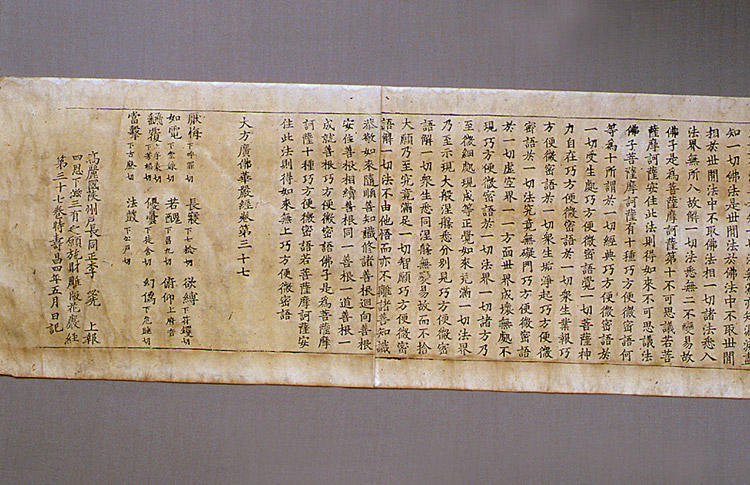 知一切佛法是世間法於佛法中不取世間
相於世間法中不取佛法相一切諸法悉入
法界無所入故解一切法悉無二不變易故
佛子是為菩薩摩訶薩第十不可思議若菩
薩摩訶薩安住此法則得如來不可思議法
佛子菩薩摩訶薩有十種巧方便微密語何
等為十所謂於一切經典巧方便微密語於
一切受生處巧方便微密語覺一切菩薩神
力自在巧方便微密語於一切衆生業報巧
方便微密語於一切衆生垢淨起巧方便微
密語於一切法究竟無礙門巧方便微密語
於一切虛空界一一方面世界成壞無處不
現巧方便微密語於一切法界一切諸方乃
至微細處現成等正覺如來充滿一切法界
乃至示現大般涅槃悉分別見巧方便微密
語解一切衆生悉同涅槃無變易故而不捨
大願乃至究竟滿足一切智願巧方便微密
語解一切法不由他悟而亦不離諸善知識
恭敬如來隨順善知識修諸善根迴向善根
安住善根相續善根同一善根一道善根一
成就善根巧方便微密語佛子是為菩薩摩
訶薩十種巧方便微密語若菩薩摩訶薩安
住此法則得如來無上巧方便微密語
大方廣佛華嚴經卷第三十七
切 長 切 欲縛 切
如覺 切 若醒 切 俯仰 上府音
切 優曇 切 幻偽 切
當擊 切 法鼓 切
高麗國陝州戶長同正李 上報
四恩下滋三有之願施財雕板花嚴經
第三十七卷時壽昌四年五月日記